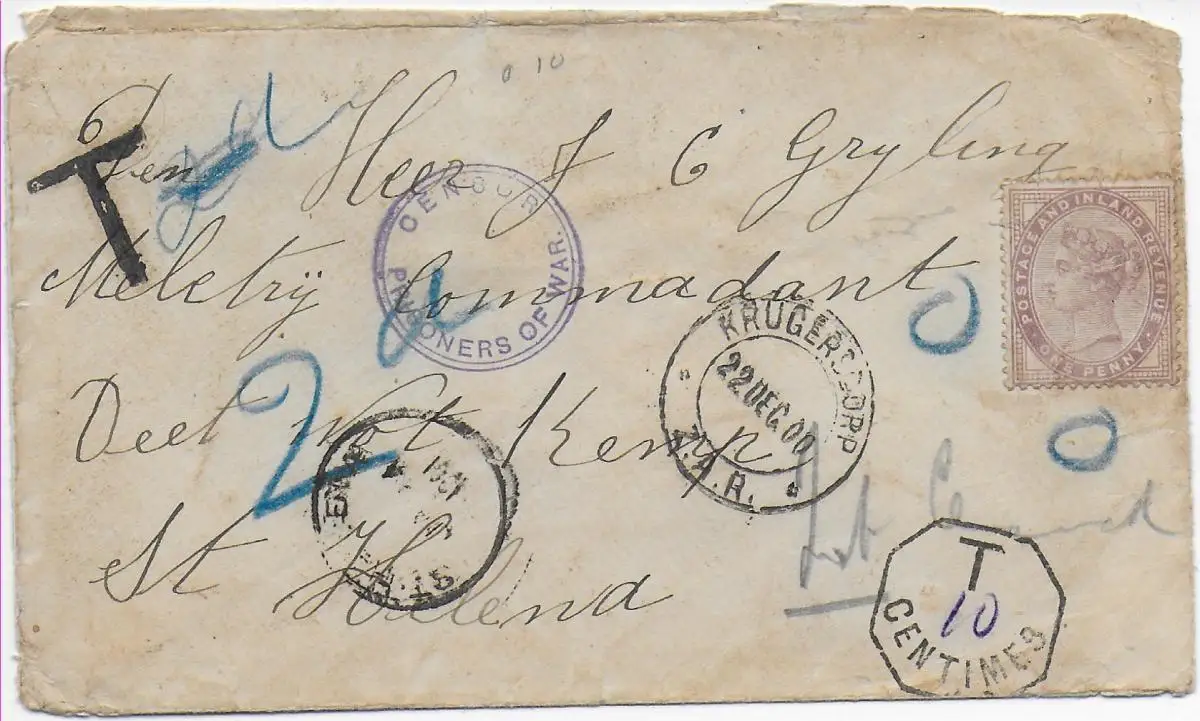 0 10
Den Heer J C Gryling
T
2d
CENSOR
PRISONERS OF WAR.
POSTAGE AND INLAND REVENUE
ONE PENNY
Meletrÿ Commadant
KRUGERSDORP
22 DEC 00
Z.A.R.
Deel Not Kemp
2
ST. H
St Helena
T
10
CENTIMES